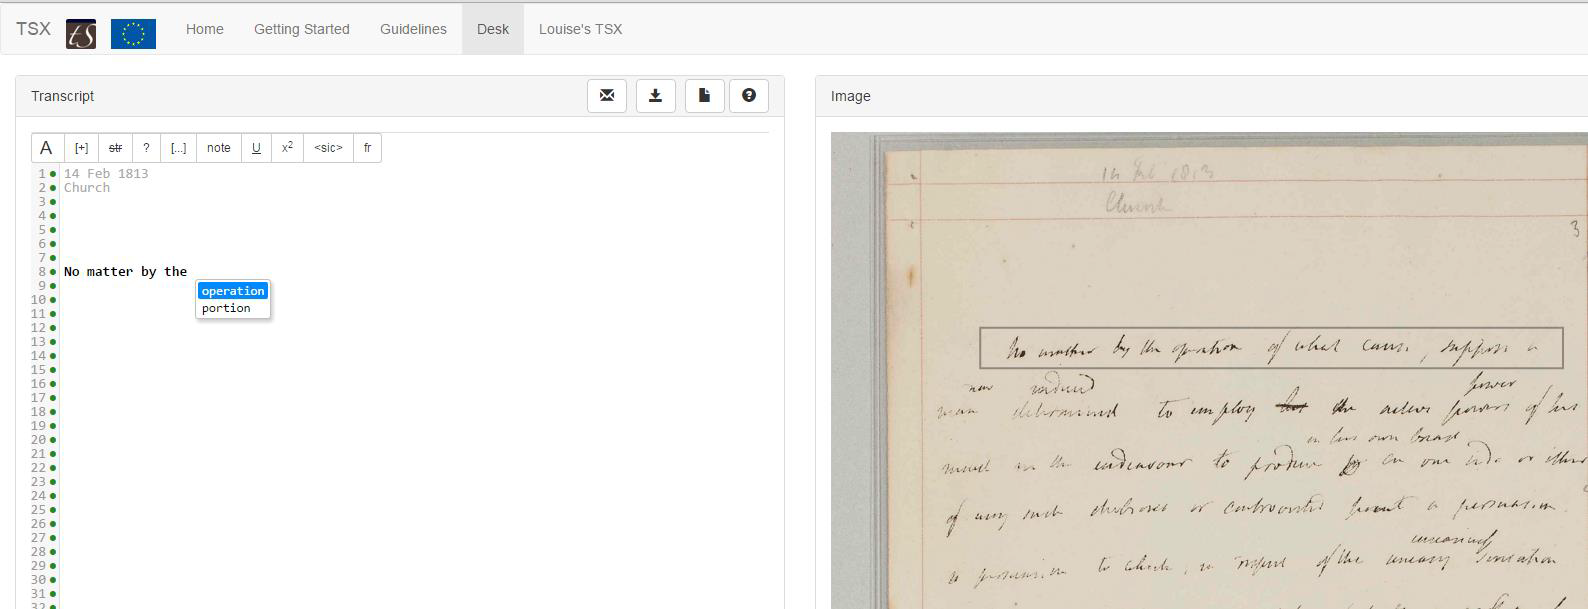 TSX
tS
Home
Getting Started
Guidelines
Desk
Louise's TSX
Transcript
A
[+]
str
?
[...]
note
U
x²
<sic>
fr
1 14 Feb 1813
2 Church
3
4
5
6
7
8 No matter by the
operation
portion
9
10
11
12
13
14
15
16
17
18
19
20
21
22
23
24
25
26
27
28
29
30
31
32
Image
14 Feb 1813
Church
3
No matter by the operation of what cause, suppose a
power
man determined to employ his the active powers of his
in his own breast
mind in the endeavour to produce in one side or other
of any such or controverted point a persuasion
a persuasion to which, in respect of the uneasy sensation